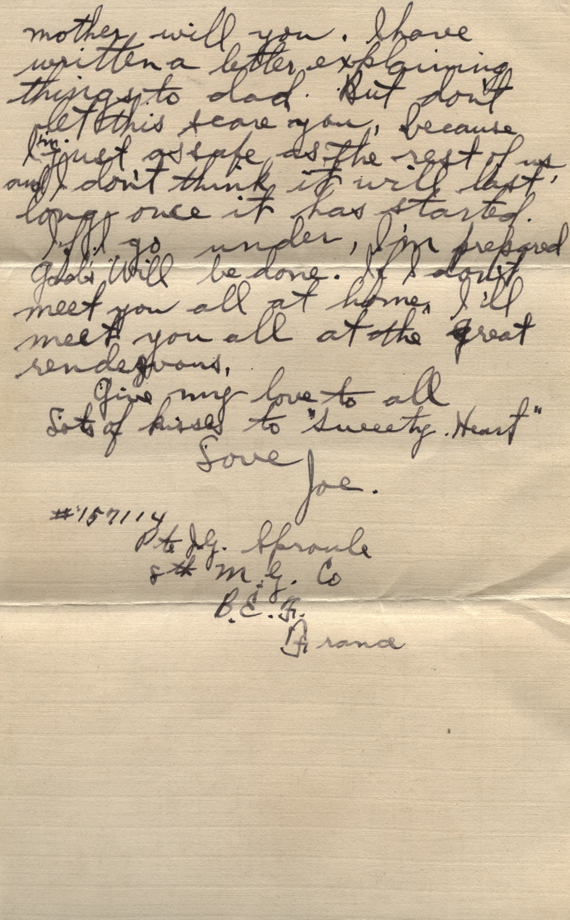 mother will you. I have
written a letter, explaining
things to dad. But don't
let this scare you, because
I'm just as safe as the rest of us
and I don't think it will last,
long once it has started.
If I go under, I'm prepared
God's Will be done. If I don't
meet you all at home, I'll
meet you all at the "great
rendezvous,
Give my love to all
Lots of kisses to "Sweety Heart"
Love
Joe.
#157114
Pte J.G. Sproule
8th M.G. Co
B.E.F.
France